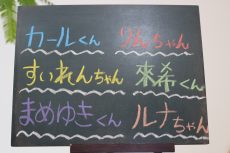 カールくん りんちゃん
すいれんちゃん 來希くん
まめゆきくん ルナちゃん